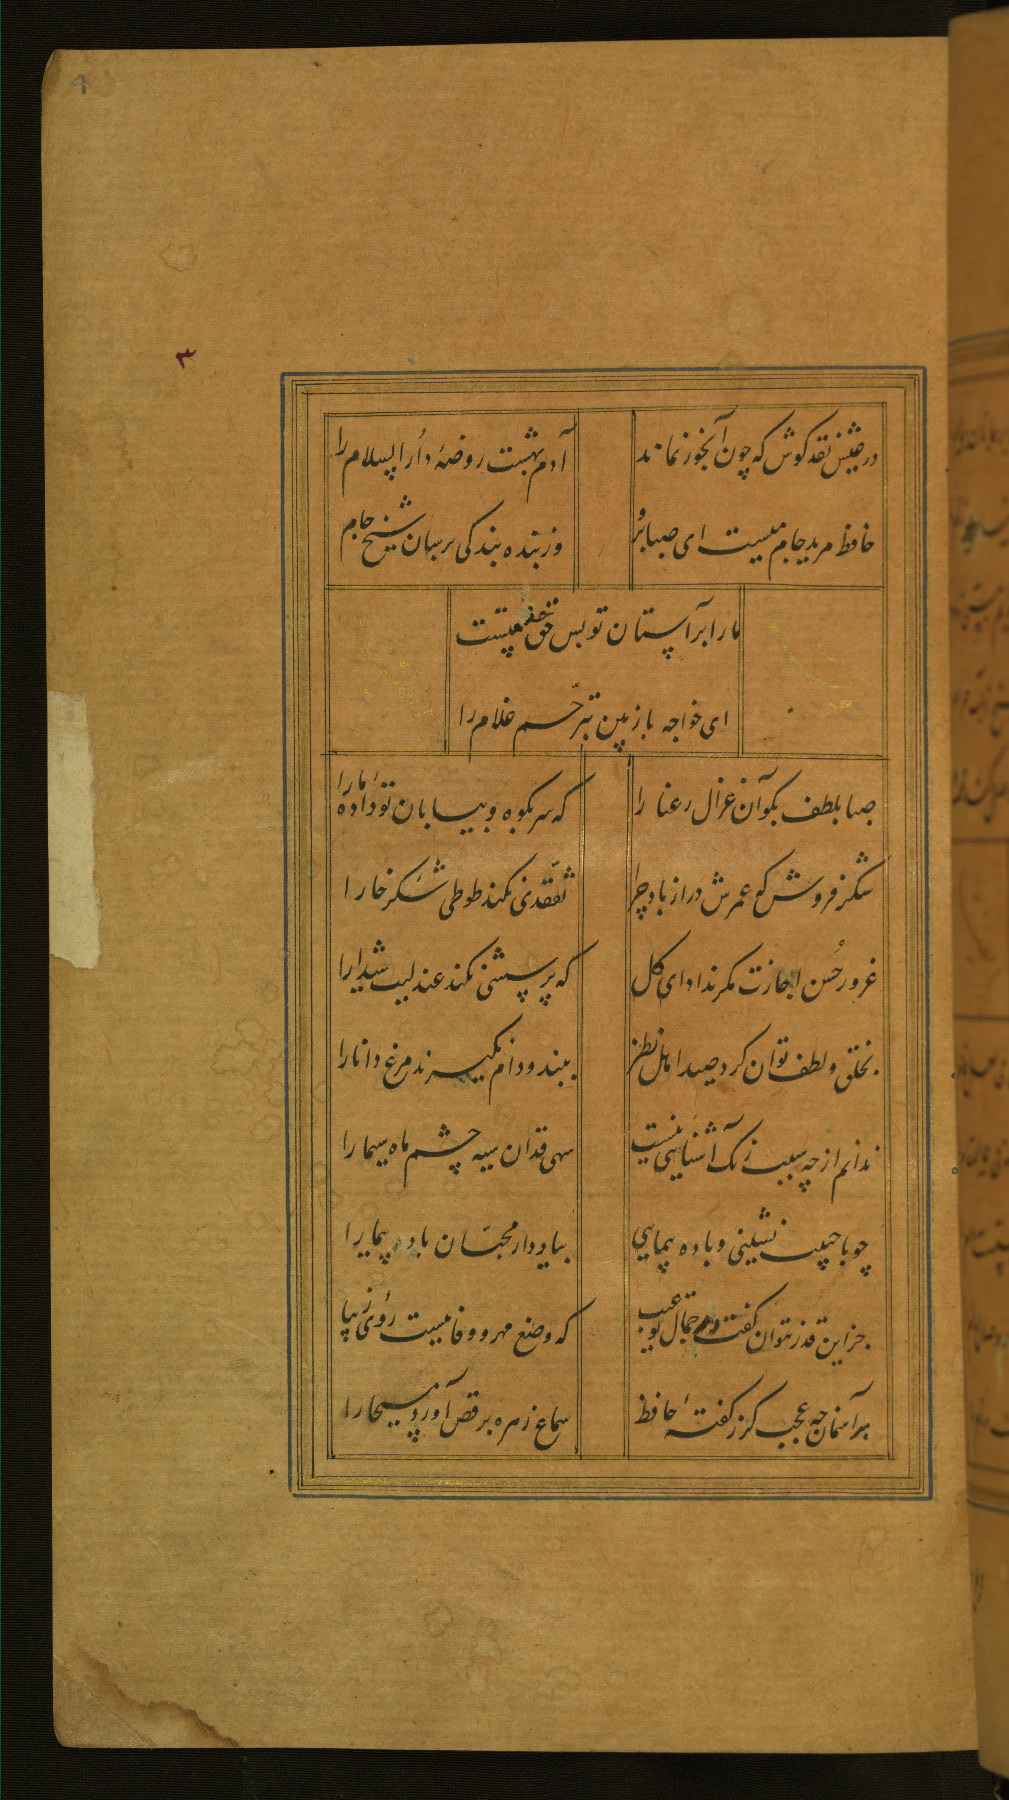 ۳
در عیش نقد کوش که چون آبخور نماند
آدم بهشت روضهٔ دار السلام را
حافظ مرید جام میست ای صبا برو
وز بنده بندگی برسان شیخ جام
ما را بر آستان تو بس حق خدمتست
ای خواجه باز بین بترحّم غلام را
صبا بلطف بگو آن غزال رعنا را
که سر بکوه و بیابان تو دادهٔ ما را
شکر فروش که عمرش دراز باد چرا
تفقّدی نکند طوطی شکر خارا
غرور حُسن اجازت مگر نداد ای گل
که پرسشی نکند عندلیب شیدا را
بخلق و لطف توان کرد صید اهل نظر
ببند و دام نگیرند مرغ دانا را
ندانم از چه سبب رنگ آشنایی نیست
سهی قدان سیه چشم ماه سیما را
چو با حبیب نشینی و باده پیمایی
بیاد دار محبّان باده پیما را
جز این قدر نتوان گفت در جمال تو عیب
که وضع مهر و وفا نیست روی زیبا
بر آسمان چه عجب گر ز گفتهٔ حافظ
سماع زهره برقص آورد مسیحا را